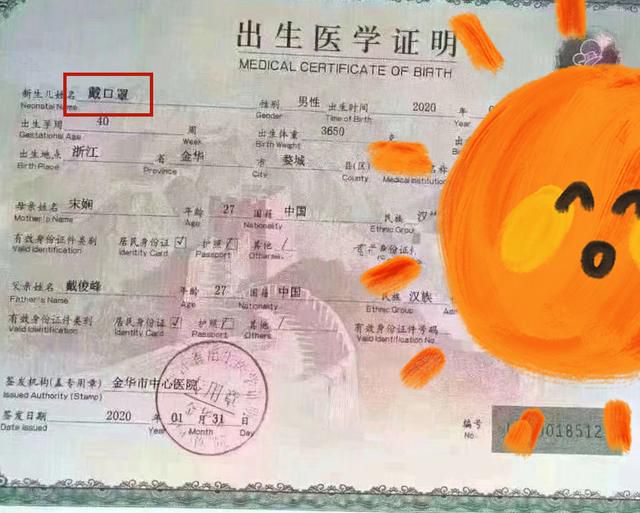 出生医学证明
MEDICAL CERTIFICATE OF BIRTH
新生儿姓名 戴口罩 性别 男性 出生时间 2020 年
Neonatal Name Gender Time of Birth Year
出生孕周 40 周 出生体重 3650
Gestational Age Week Birth Weight
出生地点 浙江 省 金华 市 婺城 县(区) 名称
Birth Place Province City County Medical Institution
母亲姓名 宋娴 年龄 27 国籍 中国 民族 汉
Mother's Name Age Nationality Ethnic Group
有效身份证件类别 居民身份证 ☑ 护照 其他 /
Valid Identification Identity Card Passport Others
父亲姓名 戴俊峰 年龄 27 国籍 中国 民族 汉族
Father's Name Age Nationality Ethnic Group
有效身份证件类别 居民身份证 ☑ 护照 其他 / 有效身份证件号码
Valid Identification Identity Card Passport Others Valid Identification No.
签发机构(盖专用章) 金华市中心医院
Issued Authority (Stamp)
签发日期 2020 年 01 月 31 日
Date Issued Year Month Day
编号
No. 0018512